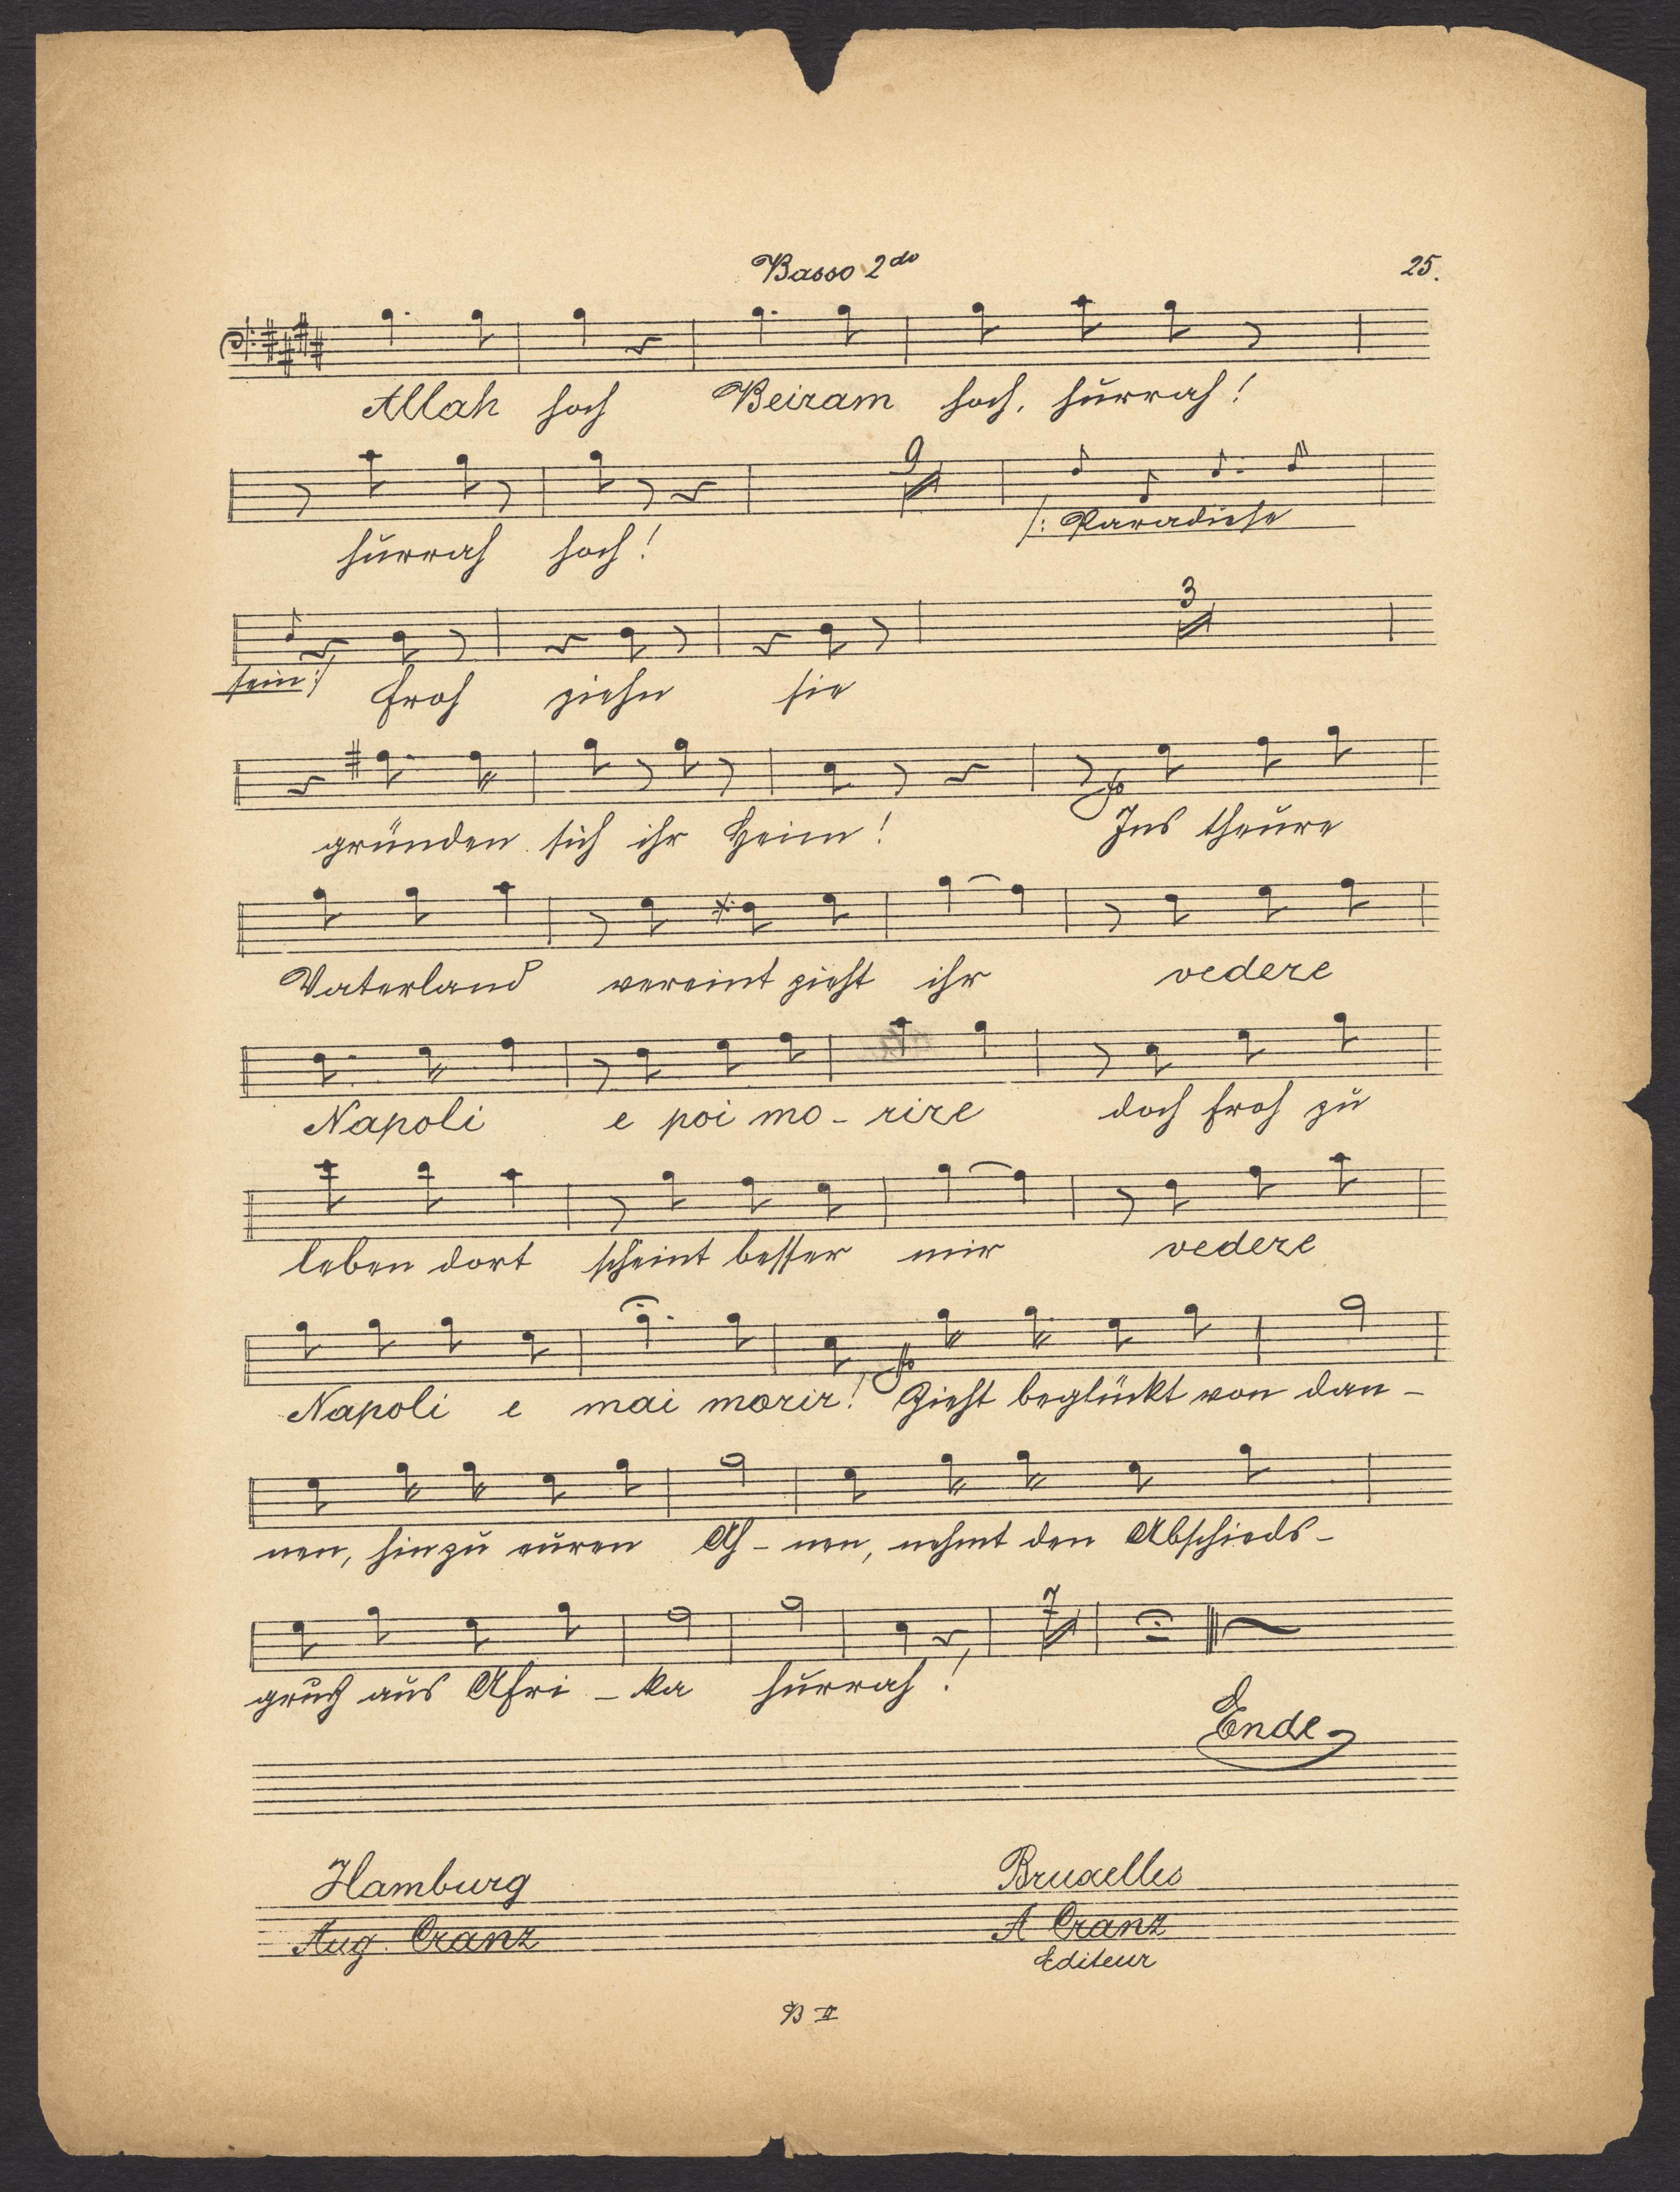 Basso 2do
25.
Allah hoch Beiram hoch, hurrah!
9
hurrah hoch! /: Paradiese
3
sein :/ froh ziehn sie
gründen sich ihr Heim! Ins theure
Vaterland vereint zieht ihr vedere
Napoli e poi mo - rire doch froh zu
leben dort scheint besser mir vedere
Napoli e mai morir! Zieht beglückt von dan -
nen, hin zu euren Ah - nen, nehmt den Abschieds -
7
gruß aus Afri - ka hurrah!
Ende
Hamburg Bruxelles
Aug. Cranz A Cranz
Editeur
B II